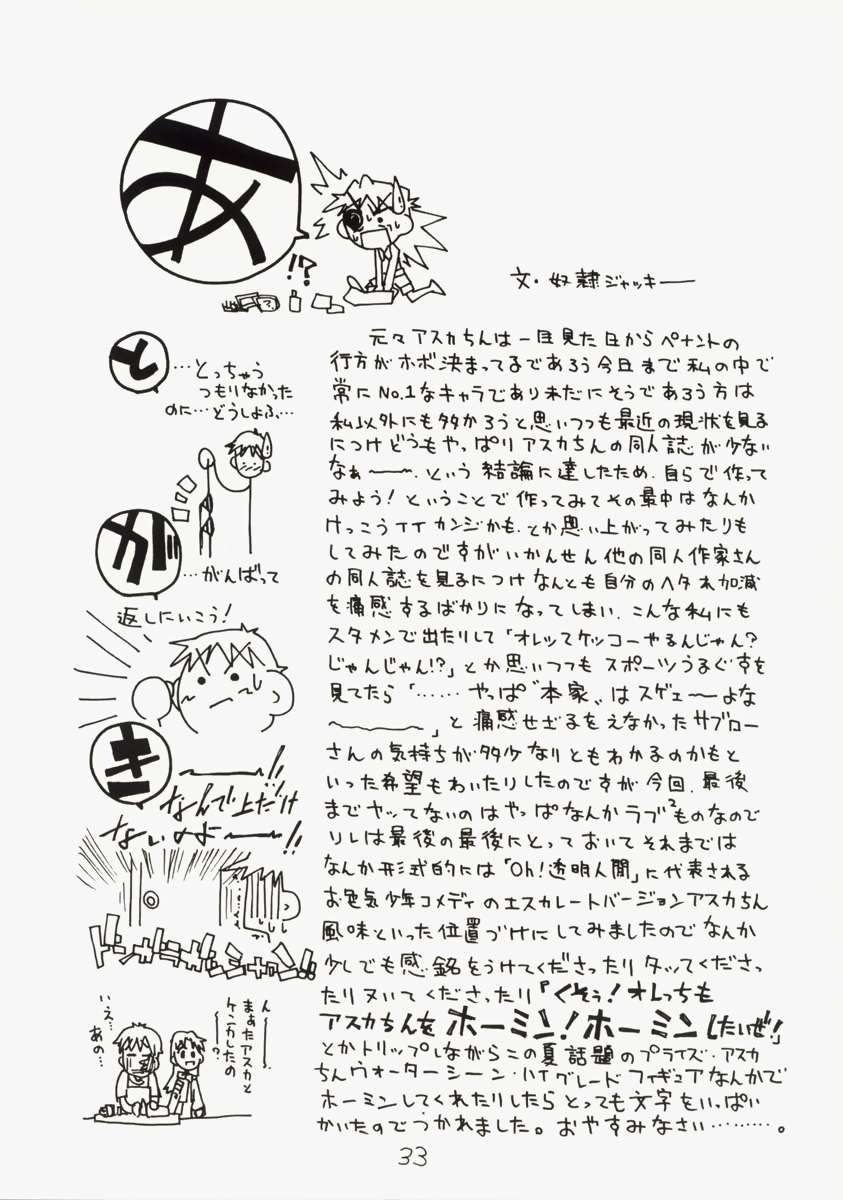 あ
!?
文・奴隷ジャッキー
と
…とっちゃう
つもりなかった
のに…どうしよふ…
が
…がんばって
返しにいこう!
き
〜〜!!
なんで上だけ
ないのよ〜〜!!
ん〜〜
まぁたアスカと
ケンカしたの
〜〜?
いえ…
あの…
元々アスカちんは一目見た日からペナントの
行方がホボ決まってるであろう今日まで私の中で
常にNo.1なキャラであり未だにそうであろう方は
私以外にも多かろうと思いつつも最近の現状を見る
につけどうもやっぱりアスカちんの同人誌が少ない
なぁ〜〜。という結論に達したため、自らで作って
みよう!ということで作ってみてその最中はなんか
けっこうイイカンジかも、とか思い上がってみたりも
してみたのですがいかんせん他の同人作家さん
の同人誌を見るにつけなんとも自分のヘタれ加減
を痛感するばかりになってしまい、こんな私にも
スタメンで出たりして「オレってケッコーやるんじゃん?
じゃんじゃん!?」とか思いつつもスポーツうるぐすを
見てたら「……やっぱ〝本家〟はスゲェ〜よな
〜〜〜」と痛感せざるをえなかったサブロー
さんの気持ちが多少なりともわかるのかもと
いった希望もわいたりしたのですが今回、最後
までヤッてないのはやっぱなんかラブ²ものなので
ソレは最後の最後にとっておいてそれまでは
なんか形式的には「Oh!透明人間」に代表される
お色気少年コメディのエスカレートバージョンアスカちん
風味といった位置づけにしてみましたのでなんか
少しでも感銘をうけてくださったりタッてくださっ
たりヌいてくださったり『くそぅ!オレっちも
アスカちんをホーミン!ホーミンしたいぜ!』
とかトリップしながらこの夏話題のプライズ・アスカ
ちんウォーターシーン・ハイグレードフィギュアなんかで
ホーミンしてくれたりしたらとっても文字をいっぱい
かいたのでつかれました。おやすみなさい………。
33